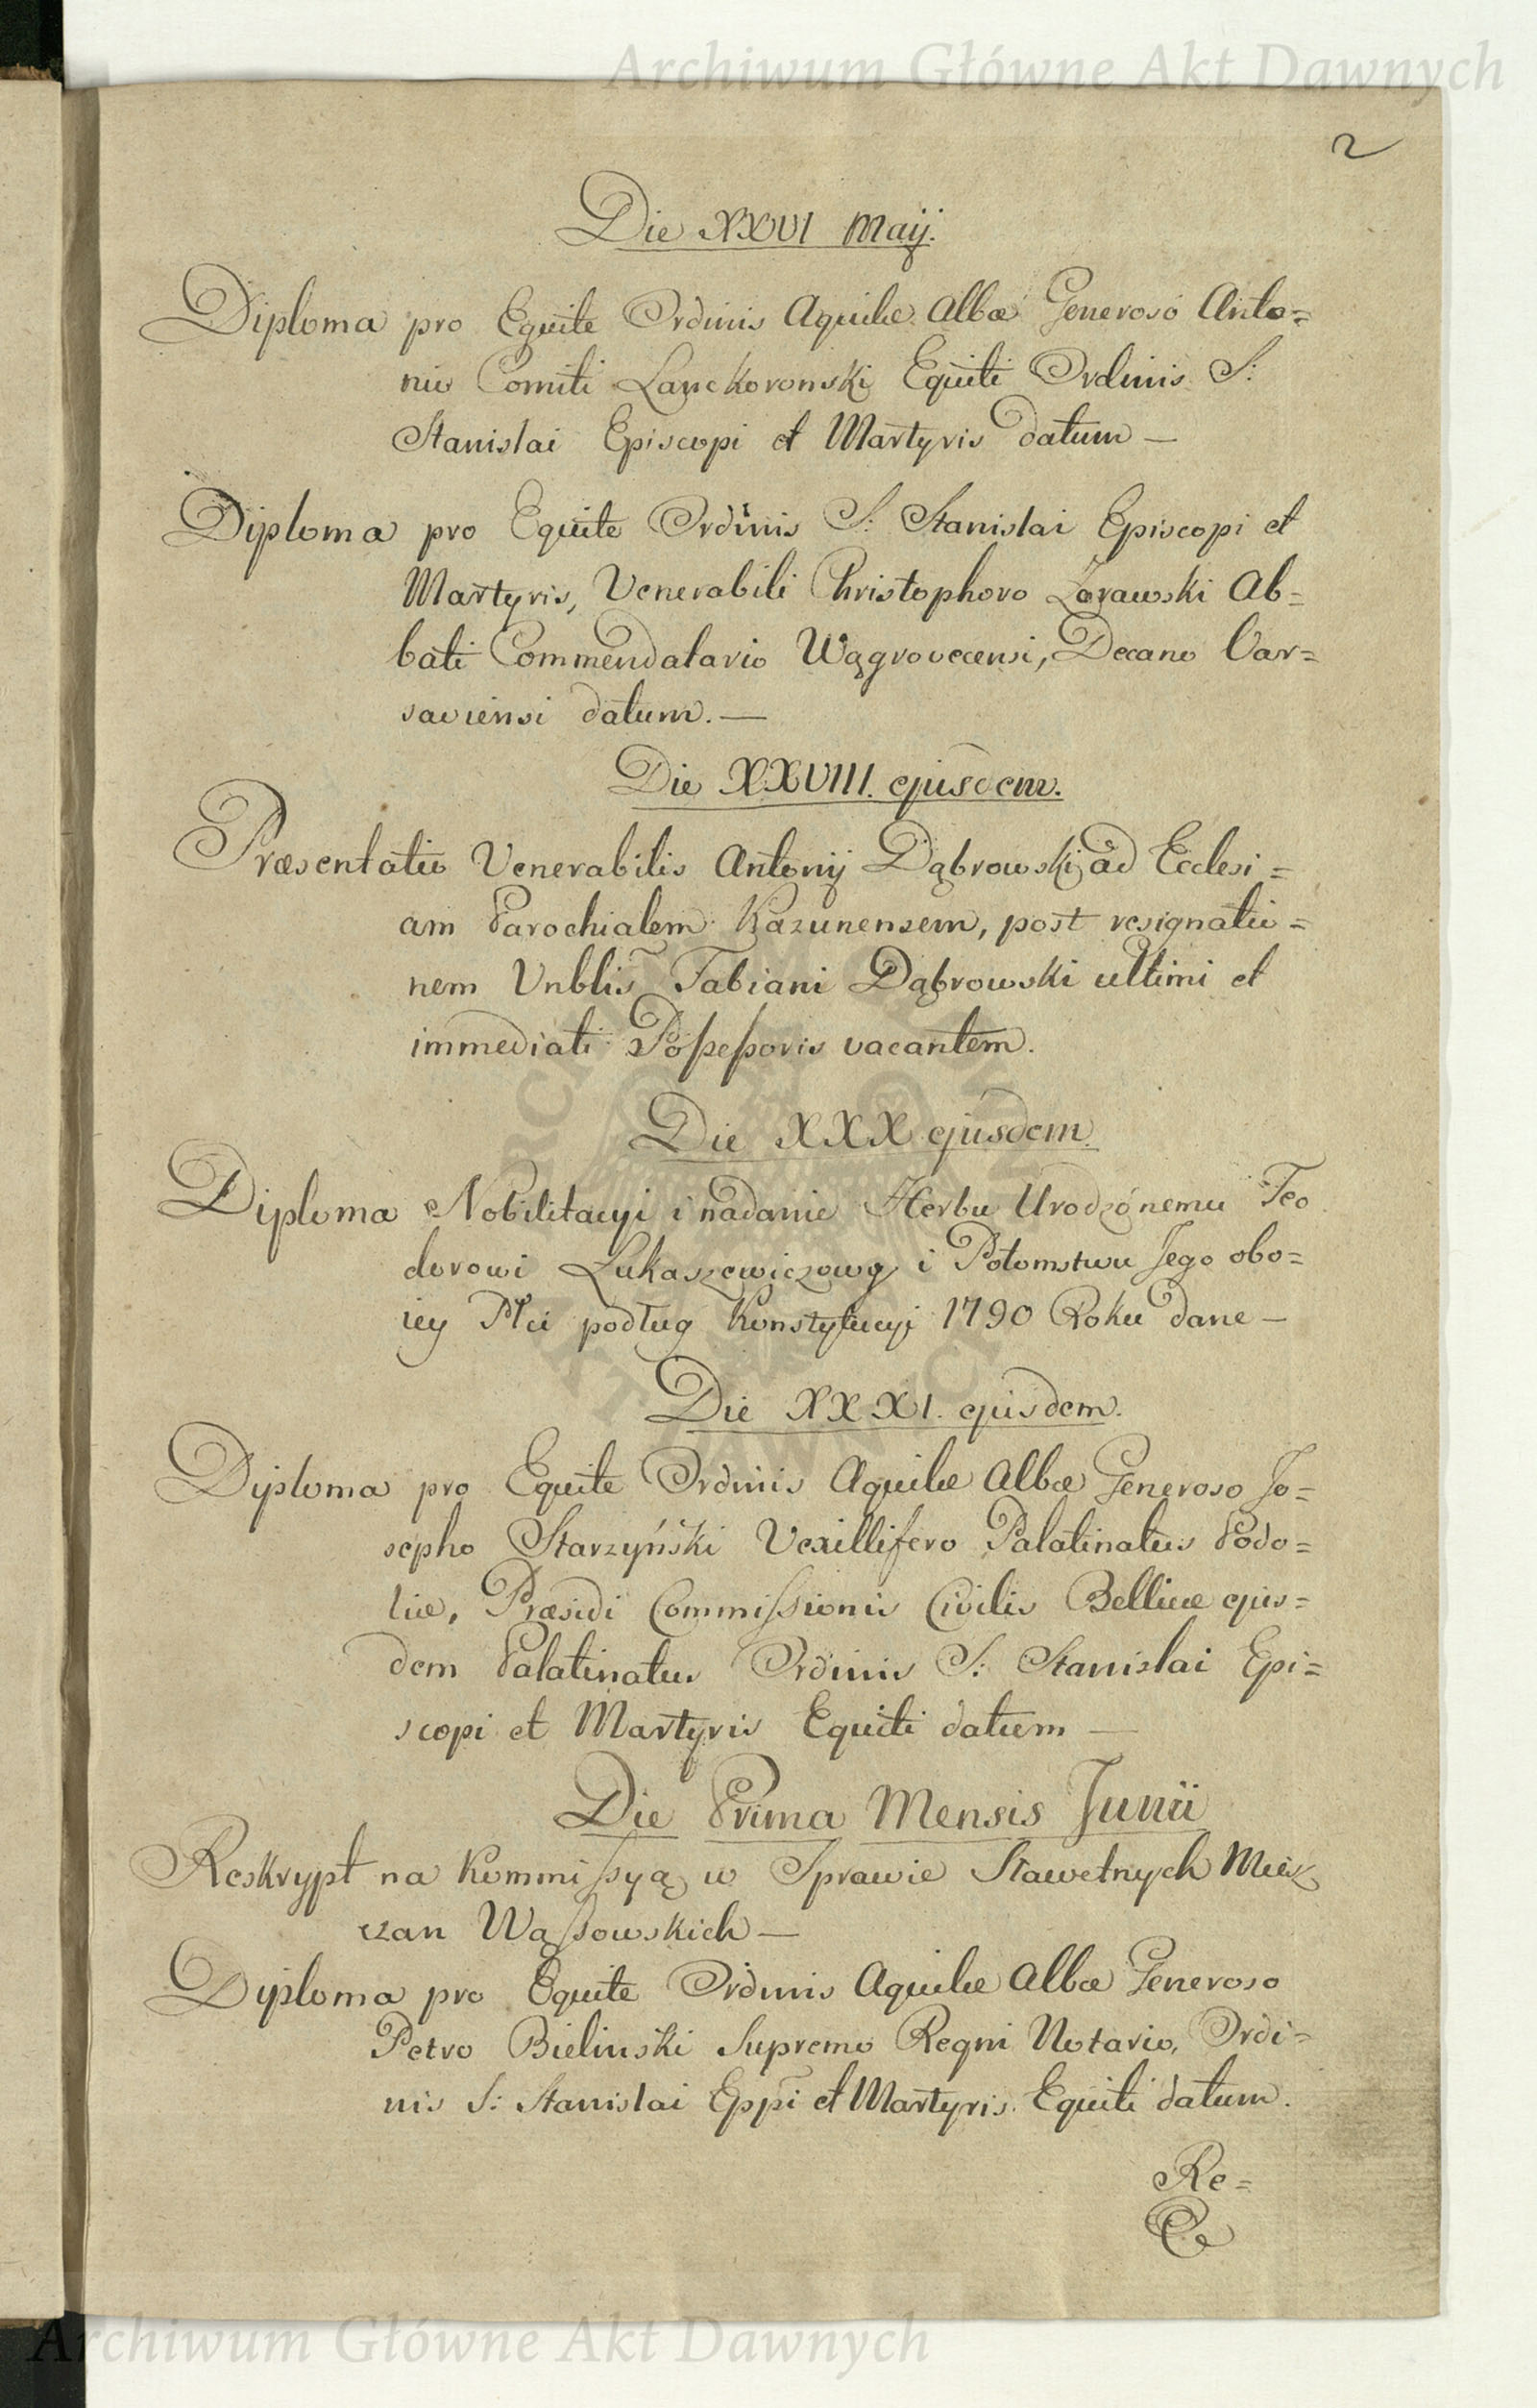 Archiwum Główne Akt Dawnych
2
Die XXVI Maij.
Diploma pro Equite Ordinis Aquilæ Albæ Generoso Anto=
nio Comiti Lanckoronski Equiti Ordinis S:
Stanislai Episcopi et Martyris datum —
Diploma pro Equite Ordinis S: Stanislai Episcopi et
Martyris, Venerabili Christophoro Żorawski Ab=
bati Commendatario Wągrovecensi, Decano Var=
saviensi datum. —
Die XXVIII. ejusdem.
Præsentatio Venerabilis Antonij Dąbrowski ad Ecclesi=
am Parochialem Kazunensem, post resignatio=
nem Vnblis Fabiani Dąbrowski ultimi et
immediati Possessoris vacantem.
Die XXX ejusdem.
Diploma Nobilitacyi i nadanie Herbu Urodzónemu Teo
dorowi Łukaszewiczowi i Potomstwu Jego obo=
iey Płci podług Konstytucyi 1790 Roku dane —
Die XXXI. ejusdem.
Diploma pro Equite Ordinis Aquilæ Albæ Generoso Jo=
sepho Starzyński Vexillifero Palatinatus Podo=
liæ, Præsidi Commissionis Civilis Bellicæ ejus=
dem Palatinatus Ordinis S: Stanislai Epi=
scopi et Martyris Equiti datum —
Die Prima Mensis Junii
Reskrypt na Kommissyą w Sprawie Sławetnych Miesz
czan Wąssowskich —
Dyploma pro Equite Ordinis Aquilæ Albæ Generoso
Petro Bielinski Supremo Regni Notario, Ordi=
nis S: Stanislai Eppi et Martyris Equiti datum.
Re=
Archiwum Główne Akt Dawnych